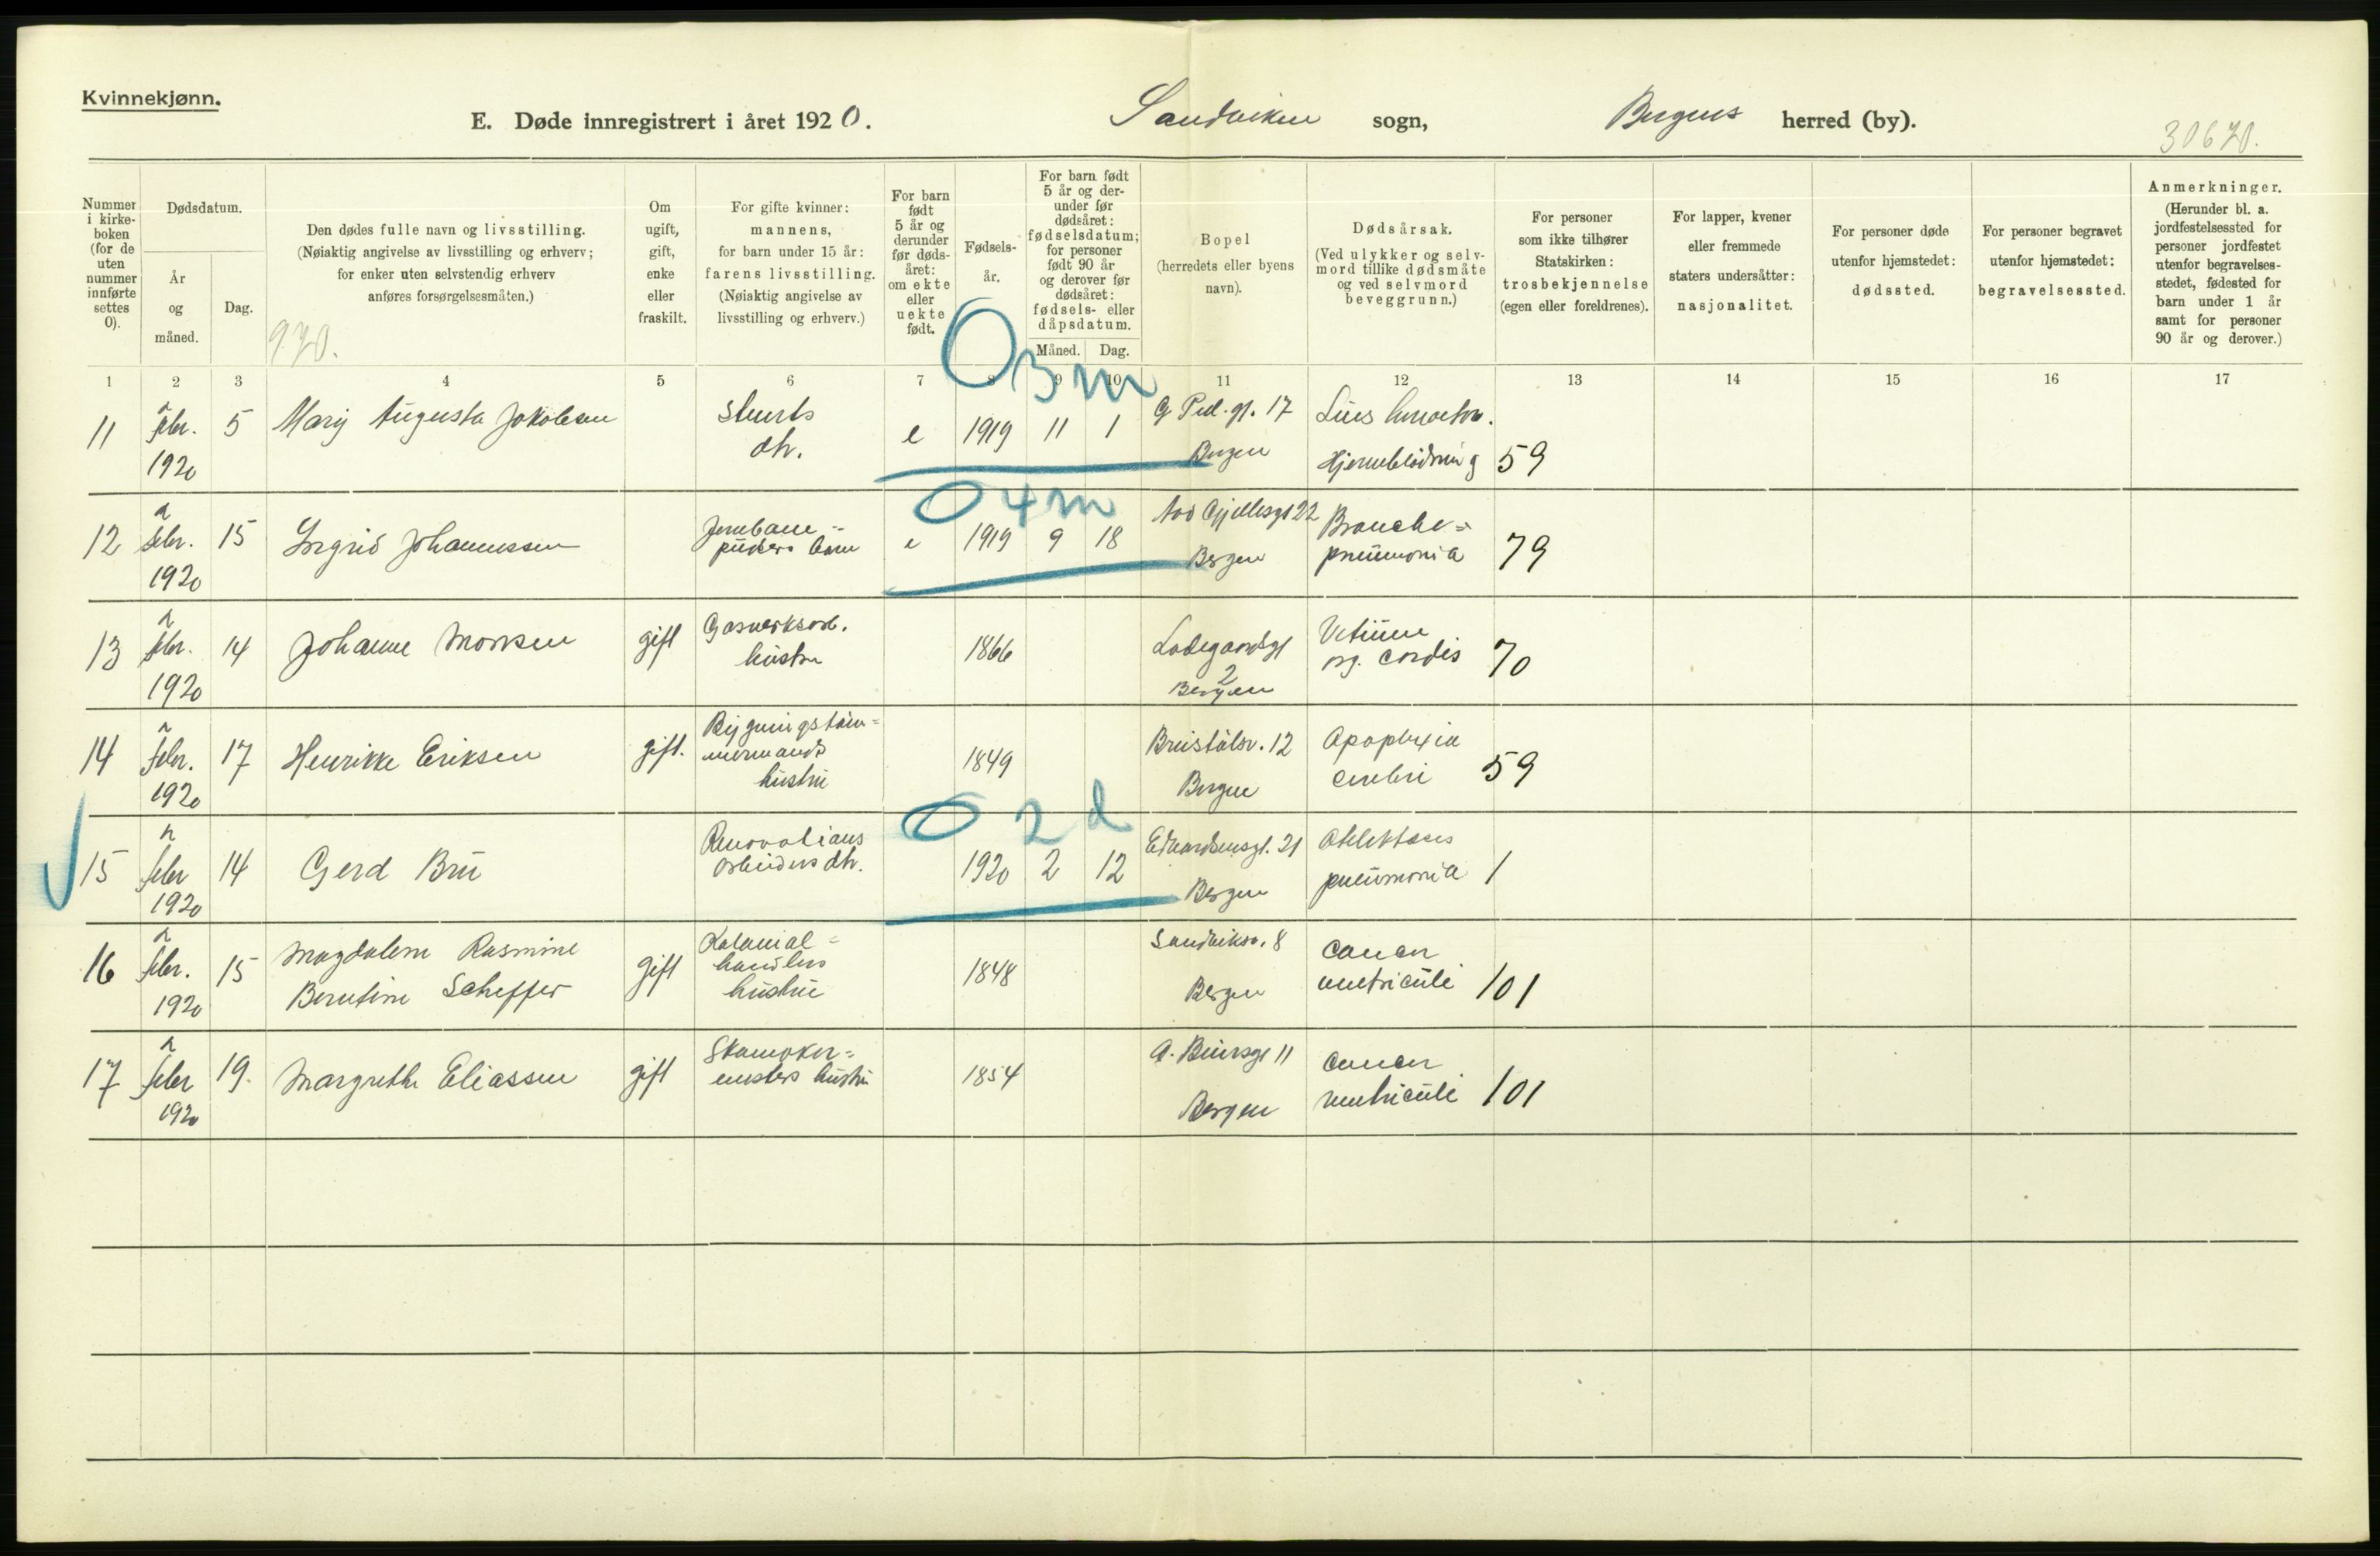 Kvinnekjønn.
E. Døde innregistrert i året 1920. Sandviken sogn, Bergens herred (by).
30670.
Nummer i kirke- boken (for de uten nummer innførte settes 0).
Dødsdatum.
År og måned.
Dag.
Den dødes fulle navn og livsstilling.
(Nøiaktig angivelse av livsstilling og erhverv;
for enker uten selvstendig erhverv
anføres forsørgelsesmåten.)
920.
Om ugift, gift, enke eller fraskilt.
For gifte kvinner:
mannens,
for barn under 15 år:
farens livsstilling.
(Nøiaktig angivelse av
livsstilling og erhverv.)
For barn født 5 år og derunder før døds- året: om ekte eller uekte født.
Fødsels- år.
For barn født 5 år og der- under før dødsåret: fødselsdatum; for personer født 90 år og derover før dødsåret: fødsels- eller dåpsdatum.
Måned. Dag.
Bopel
(herredets eller byens
navn).
Dødsårsak.
(Ved ulykker og selv-
mord tillike dødsmåte
og ved selvmord
beveggrunn.)
For personer
som ikke tilhører
Statskirken:
trosbekjennelse
(egen eller foreldrenes).
For lapper, kvener
eller fremmede
staters undersåtter:
nasjonalitet.
For personer døde
utenfor hjemstedet:
dødssted.
For personer begravet
utenfor hjemstedet:
begravelsessted.
Anmerkninger.
(Herunder bl. a.
jordfestelsessted for
personer jordfestet
utenfor begravelses-
stedet, fødested for
barn under 1 år
samt for personer
90 år og derover.)
1 2 3 4 5 6 7 8 9 10 11 12 13 14 15 16 17
0 3 m
11 febr. 1920 5 Mary Augusta Jakobsen
dtr.
e 1919 11 1
17
Bergen
Lues
Hjerneblödning 59
0 4 m
12 febr. 1920 15 Ingrid Johannessen
Jernbane=
pudsers barn
e 1919 9 18
22
Bergen
Broncho=
pneumonia 79
13 febr. 1920 14 Johanne Monsen gift
Gasverksarb.
hustru
1866
Ladegaardsgt
2
Bergen
Vitium
org. cordis 70
14 febr. 1920 17 Henrikke Eriksen gift.
Bygningstöm=
mermands
hustru
1849
12
Bergen
Apoplexia
cerebri 59
0 2 d
15 febr 1920 14 Gerd Bru
Renovations
arbeiders dtr.
1920 2 12
Edvardsensgt. 21
Bergen
Atelektases
pneumonia 1
16 febr. 1920 15 Magdalene Rasmine
Berntine Scheffer
gift
Kolonial=
handlers
hustru
1848
Sandviksv. 8
Bergen
Cancer
ventriculi 101
17 febr 1920 19. Margrethe Eliassen gift
hustru
1854
11
Bergen
Cancer
ventriculi 101